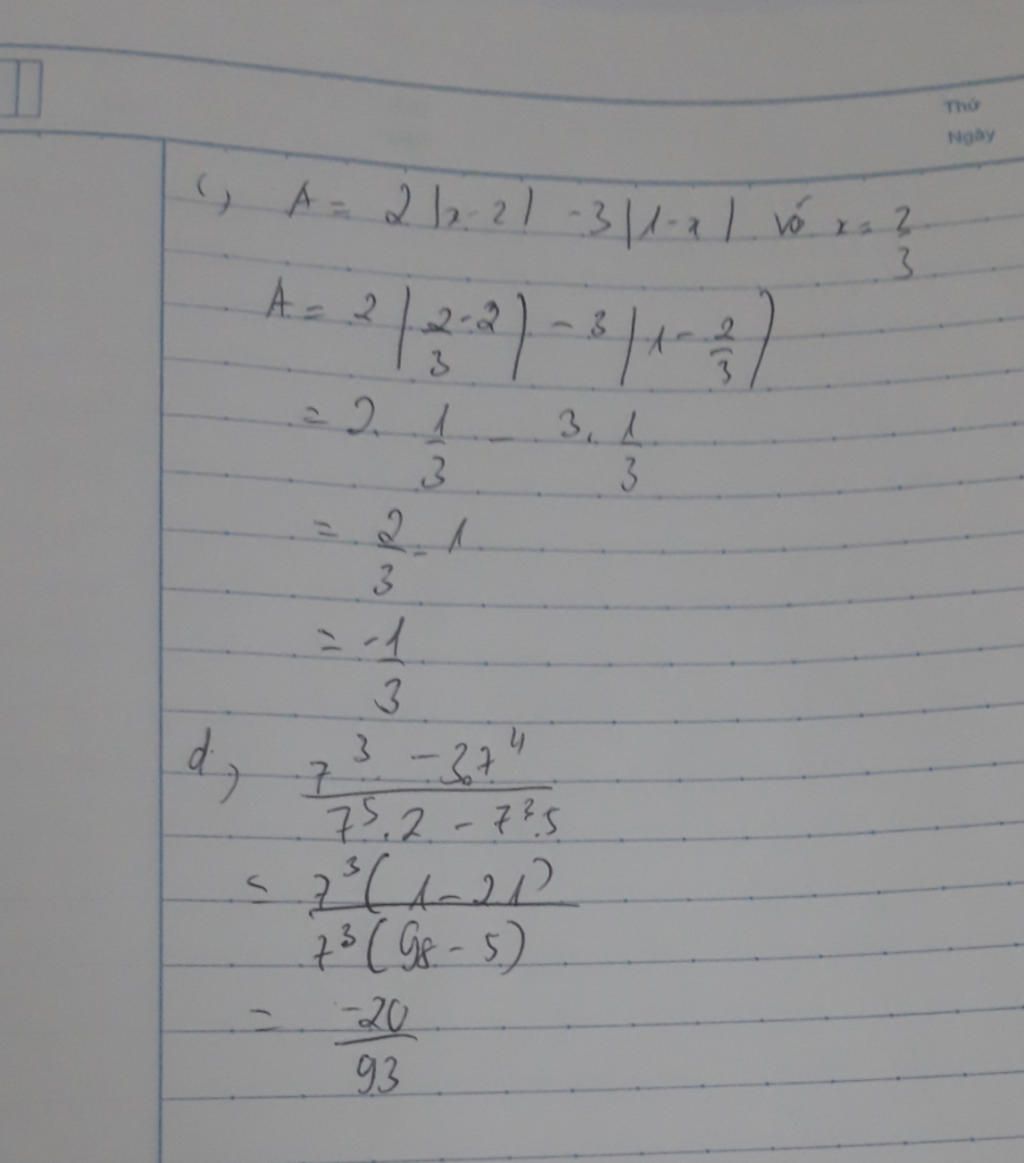 Thứ
Ngày
c, A = 2|x-2| -3|1-x| với x = 2/3
A = 2|2/3 - 2| - 3|1 - 2/3|
= 2. 1/3 - 3. 1/3
= 2/3 - 1
= -1/3
d, (7^3 - 3.7^4)/(7^5.2 - 7^3.5)
= 7^3(1-21)/7^3(98-5)
= -20/93